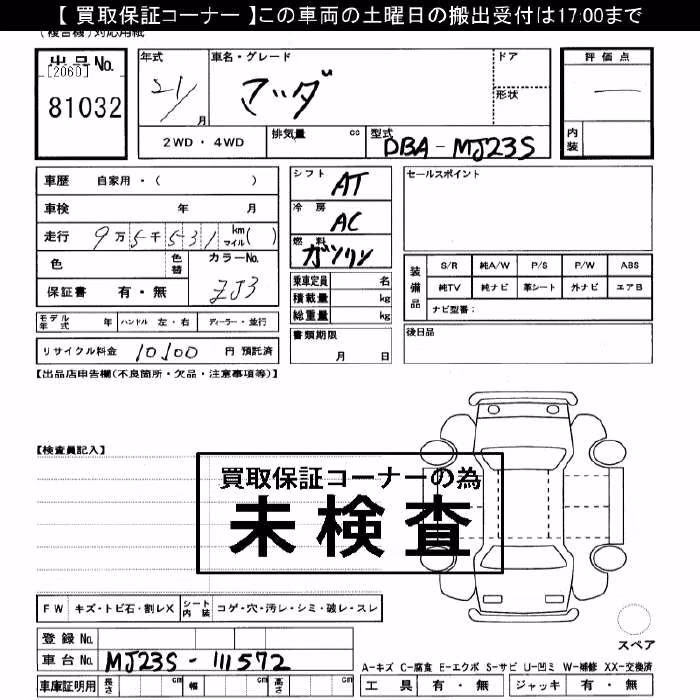 【 買取保証コーナー 】この車両の土曜日の搬出受付は17:00まで
(複合機)対応用紙
出品No.
[2060]
81032
年式
21/
月
車名・グレード
マツダ
ドア
形状
評価点
—
内装
2WD・4WD
排気量 cc
型式 DBA-MJ23S
車歴 自家用・( )
車検 年 月
走行 9万5千531 km マイル( )
色
色替
カラーNo.
ZJ3
保証書 有・無
シフト AT
冷房 AC
燃料 ガソリン
乗車定員 名
積載量 kg
総重量 kg
セールスポイント
装備品
S/R 純A/W P/S P/W ABS
純TV 純ナビ 革シート 外ナビ エアB
ナビ型番:
モデル年式 年 ハンドル 左・右 ディーラー・並行
リサイクル料金 10,100 円 預託済
書類期限
月 日
後日品
【出品店申告欄(不良箇所・欠品・注意事項等)】
【検査員記入】
買取保証コーナーの為
未検査
FW キズ・トビ石・割レX シート内装 コゲ・穴・汚レ・シミ・破レ・スレ
スペア
登録No.
車台No. MJ23S-111572
車庫証明用 長さ cm 幅 cm 高さ cm
A-キズ C-腐食 E-エクボ S-サビ U-凹ミ W-補修 XX-交換済
工具 有・無 ジャッキ 有・無